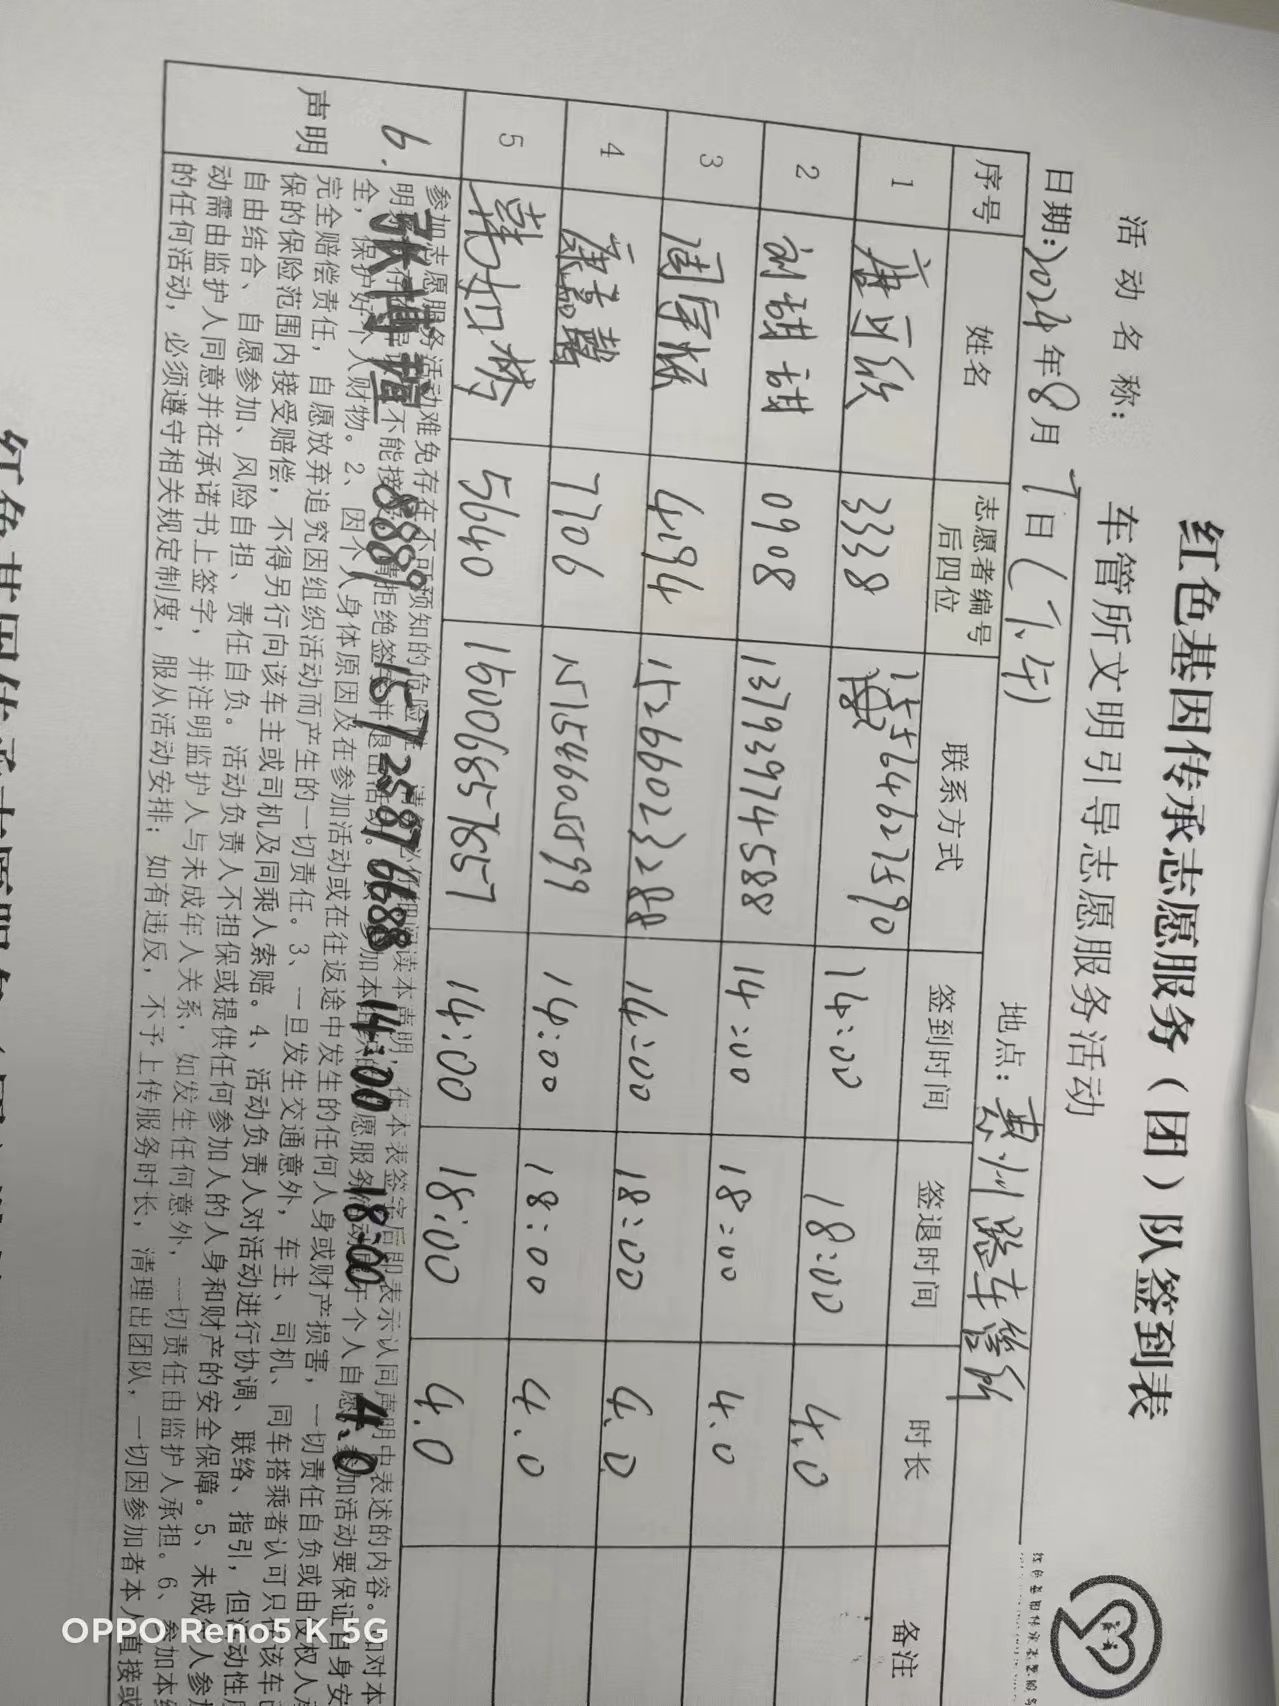 红色基因传承志愿服务（团）队签到表
活动名称：车管所文明引导志愿服务活动
日期:2024年8月7日(下午) 地点：惠州路车管所
序号 姓名 志愿者编号后四位 联系方式 签到时间 签退时间 时长 备注
1 唐可欣 3338 15564627590 14:00 18:00 4.0
2 刘甜甜 0908 13793974588 14:00 18:00 4.0
3 周字烦 4194 15266023288 14:00 18:00 4.0
4 康嘉馨 7706 15154605899 14:00 18:00 4.0
5 韩如梦 5640 15006657857 14:00 18:00 4.0
6. 8881 15725876688 14:00 18:00 4.0
声明
参加志愿服务活动难免存在不可预知的危险 阅读本声明，在本表签字后即表示认同声明中表述的内容。如对本
明 不能接 请拒绝签 并退出活动。 参加本 愿服务 个人自愿 参加活动要保证自身安
全，保护好个人财物。2、因个人身体原因及在参加活动或在往返途中发生的任何人身或财产损害，一切责任自负或由侵权人
完全赔偿责任，自愿放弃追究因组织活动而产生的一切责任。3、一旦发生交通意外，车主、司机、同车搭乘者认可只 该车
保的保险范围内接受赔偿，不得另行向该车主或司机及同乘人索赔。4、活动负责人对活动进行协调、联络、指引，但活动性
自由结合、自愿参加、风险自担、责任自负。活动负责人不担保或提供任何参加人的人身和财产的安全保障。5、未成 人参
动需由监护人同意并在承诺书上签字，并注明监护人与未成年人关系，如发生任何意外，一切责任由监护人承担。6、参加本
的任何活动，必须遵守相关规定制度，服从活动安排；如有违反，不予上传服务时长，清理出团队，一切因参加者本人直接或
OPPO Reno5 K 5G